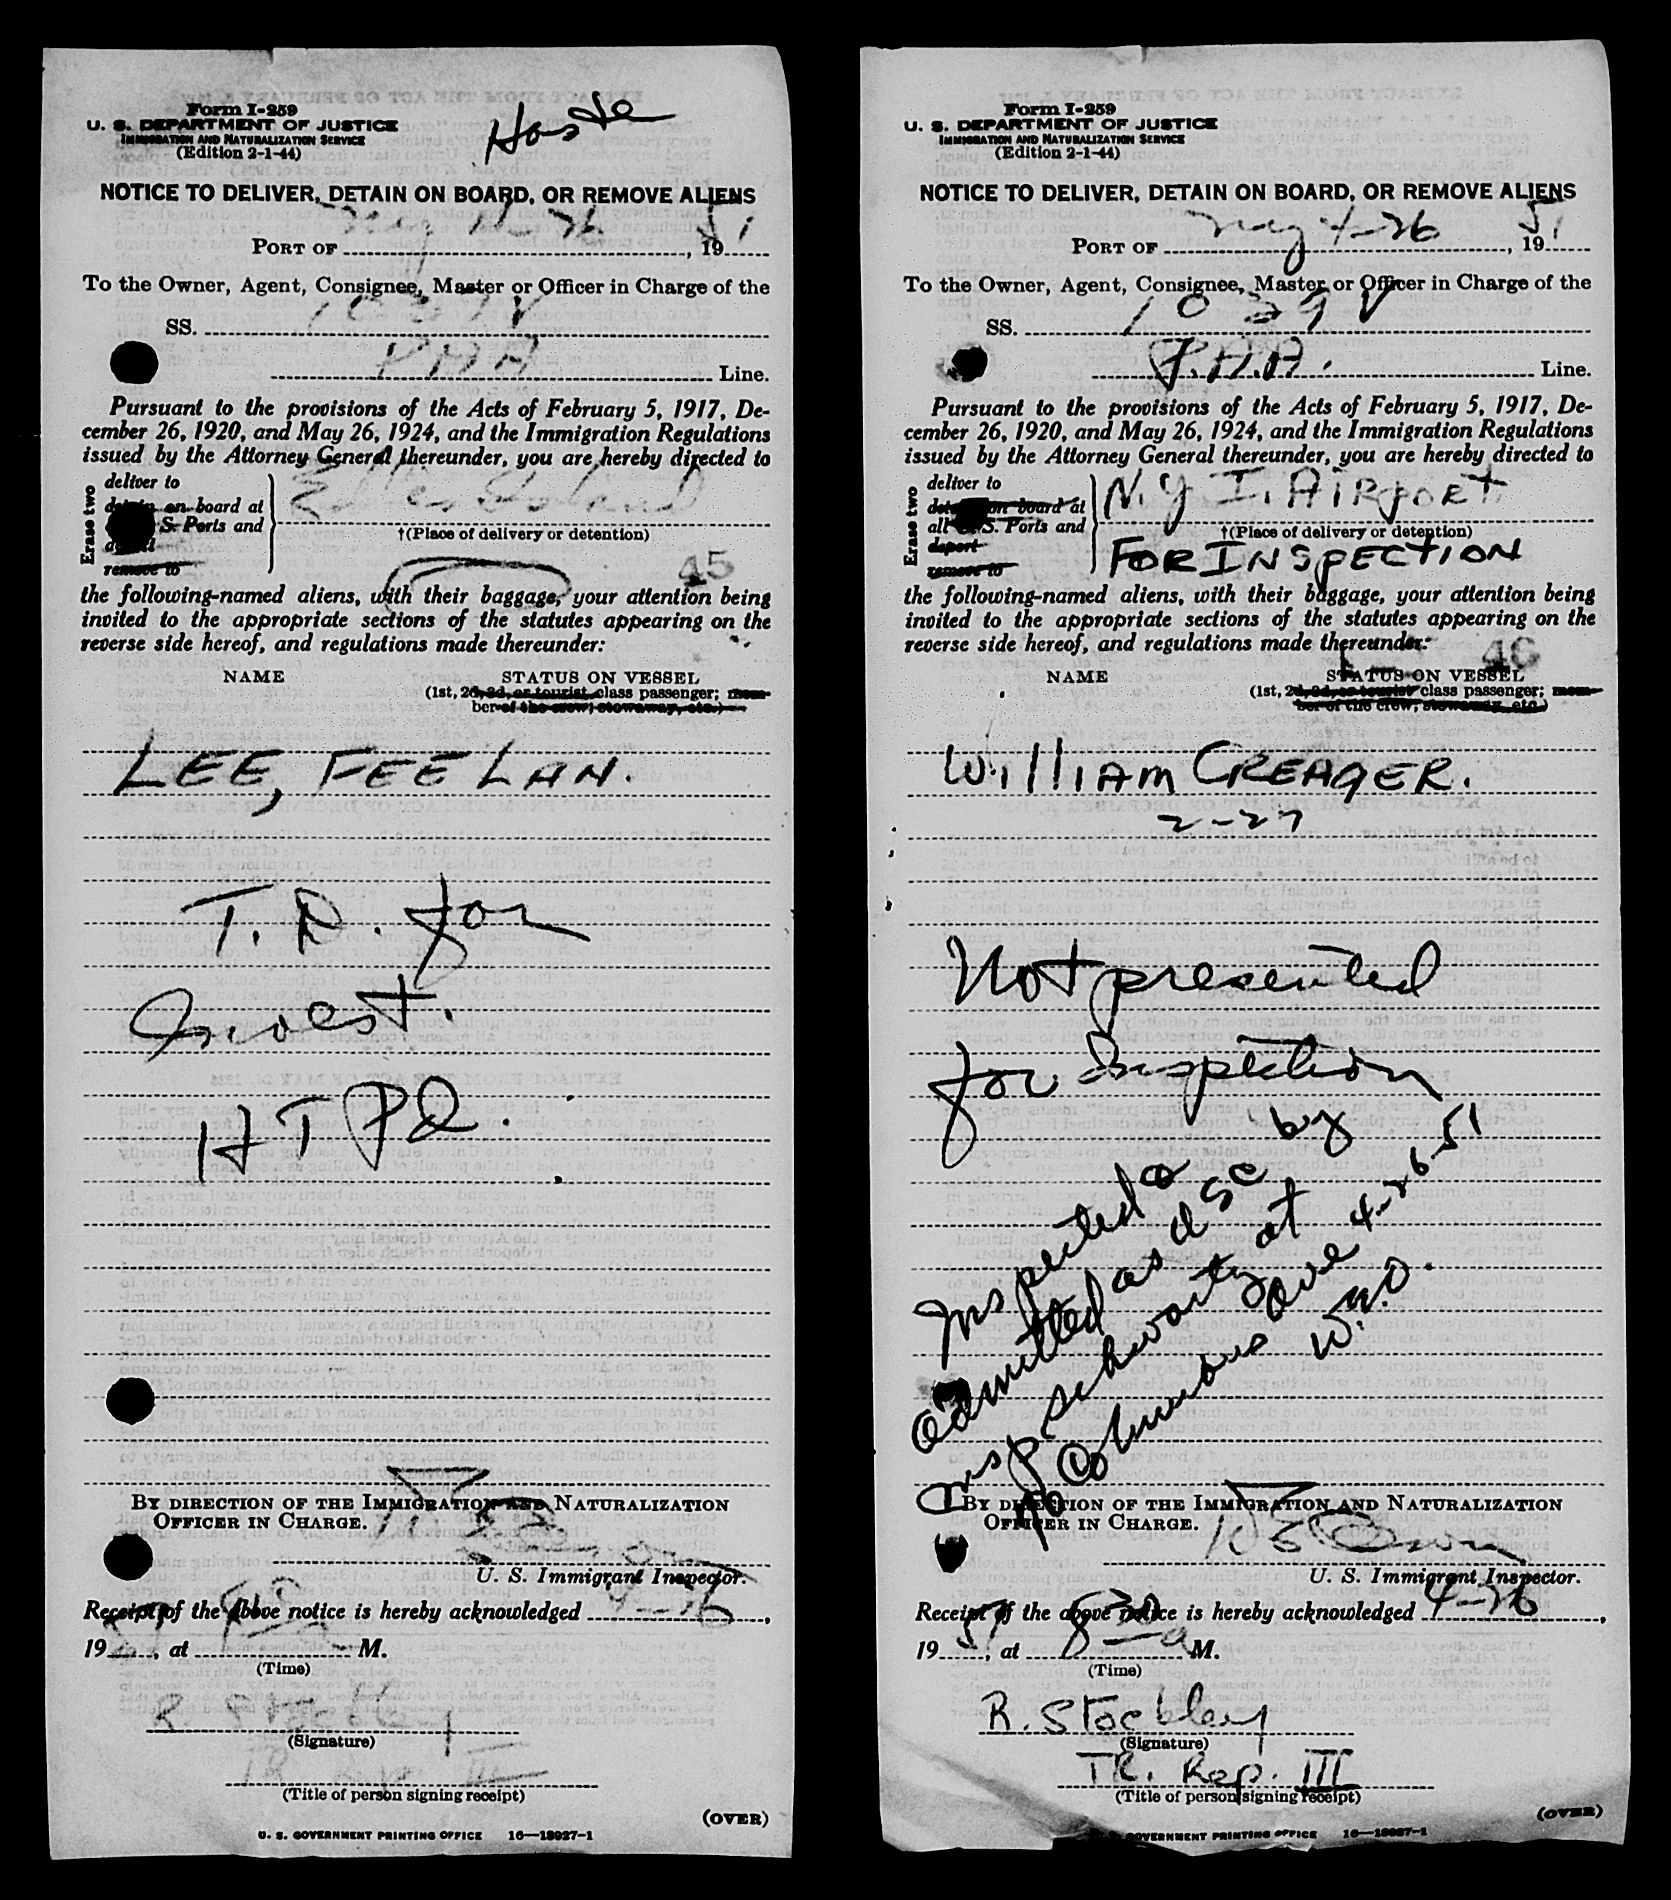 Form I-259
U. S. DEPARTMENT OF JUSTICE
IMMIGRATION AND NATURALIZATION SERVICE
(Edition 2-1-44)
NOTICE TO DELIVER, DETAIN ON BOARD, OR REMOVE ALIENS
PORT OF NY 4-26, 1951
To the Owner, Agent, Consignee, Master or Officer in Charge of the
SS. 1039V
PAA Line.
Pursuant to the provisions of the Acts of February 5, 1917, De-
cember 26, 1920, and May 26, 1924, and the Immigration Regulations
issued by the Attorney General thereunder, you are hereby directed to
Erase two
deliver to
detain on board at
S. Ports and
remove to
Ellis Island
†(Place of delivery or detention)
45
the following-named aliens, with their baggage, your attention being
invited to the appropriate sections of the statutes appearing on the
reverse side hereof, and regulations made thereunder:
NAME STATUS ON VESSEL
(1st, 2d, 3d, or tourist class passenger; mem-
ber of the crew; stowaway, etc.)
LEE, FEE LAN.
T. D. for
Invest.
BY DIRECTION OF THE IMMIGRATION AND NATURALIZATION
OFFICER IN CHARGE.
U. S. Immigrant Inspector.
Receipt of the above notice is hereby acknowledged 4-26,
1951, at M.
(Time)
R. Stockley
(Signature)
TR. Rep. III
(Title of person signing receipt)
(OVER)
U. S. GOVERNMENT PRINTING OFFICE 16—18027-1
Form I-259
U. S. DEPARTMENT OF JUSTICE
IMMIGRATION AND NATURALIZATION SERVICE
(Edition 2-1-44)
NOTICE TO DELIVER, DETAIN ON BOARD, OR REMOVE ALIENS
PORT OF NY 4-26, 1951
To the Owner, Agent, Consignee, Master or Officer in Charge of the
SS. 1039V
P.A.A. Line.
Pursuant to the provisions of the Acts of February 5, 1917, De-
cember 26, 1920, and May 26, 1924, and the Immigration Regulations
issued by the Attorney General thereunder, you are hereby directed to
Erase two
deliver to
detain on board at
all U.S. Ports and
deport
remove to
N.Y I. AIRPORT
†(Place of delivery or detention)
FOR INSPECTION
the following-named aliens, with their baggage, your attention being
invited to the appropriate sections of the statutes appearing on the
reverse side hereof, and regulations made thereunder:
46
NAME STATUS ON VESSEL
(1st, 2d, 3d, or tourist class passenger; mem-
ber of the crew; stowaway, etc.)
WILLIAM CREAGER.
2-27
Not presented
for Inspection
by
Inspected &
admitted as a SC
Insp Schwartz at
70 Columbus Ave 4-26-51
BY DIRECTION OF THE IMMIGRATION AND NATURALIZATION
OFFICER IN CHARGE.
U. S. Immigrant Inspector.
Receipt of the above notice is hereby acknowledged 4-26,
1951, at 830 a M.
(Time)
R. Stockley
(Signature)
TR. Rep. III
(Title of person signing receipt)
(OVER)
GOVERNMENT PRINTING OFFICE 16—18027-1